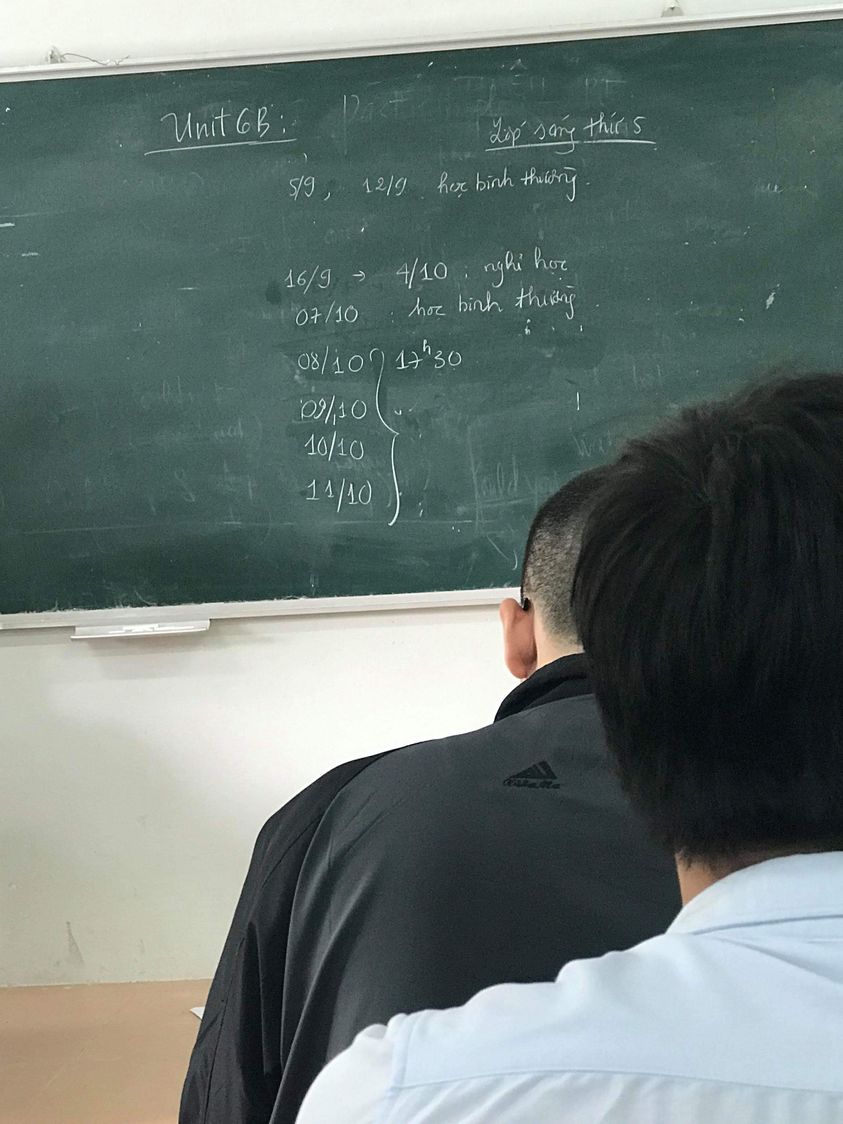 Unit 6B:
Lớp sáng thứ 5
5/9, 12/9 học bình thường.
16/9 → 4/10 : nghỉ học
07/10 : học bình thường
08/10 17h30
09/10
10/10
11/10